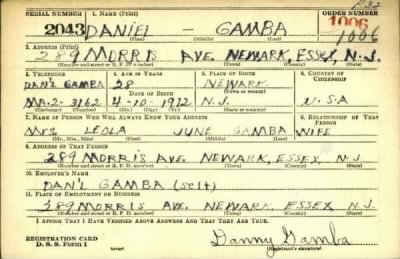 SERIAL NUMBER 1. NAME (Print) ORDER NUMBER
2043 DANIEL - GAMBA 1006
(First) (Middle) (Last) 1006
2. ADDRESS (Print)
289 MORRIS AVE. NEWARK, ESSEX, N.J.
(Number and street or R. F. D. number) (Town) (County) (State)
3. TELEPHONE 4. AGE IN YEARS 5. PLACE OF BIRTH 6. COUNTRY OF CITIZENSHIP
DAN'L GAMBA 28 NEWARK
(Town or county)
MA-2-3162 4-10-1912 N.J. U.S.A
(Exchange) (Number) (Mo.) (Day) (Yr.) (State or country)
7. NAME OF PERSON WHO WILL ALWAYS KNOW YOUR ADDRESS 8. RELATIONSHIP OF THAT PERSON
MRS. LEOLA JUNE GAMBA WIFE
(Mr., Mrs., Miss) (First) (Middle) (Last)
9. ADDRESS OF THAT PERSON
289 MORRIS AVE. NEWARK, ESSEX, N.J.
(Number and street or R. F. D. number) (Town) (County) (State)
10. EMPLOYER'S NAME
DAN'L GAMBA (self)
11. PLACE OF EMPLOYMENT OR BUSINESS
289 MORRIS AVE. NEWARK ESSEX N.J.
(Number and street or R. F. D. number) (Town) (County) (State)
I AFFIRM THAT I HAVE VERIFIED ABOVE ANSWERS AND THAT THEY ARE TRUE.
REGISTRATION CARD
D. S. S. Form 1 (over) Danny Gamba
(Registrant's signature)